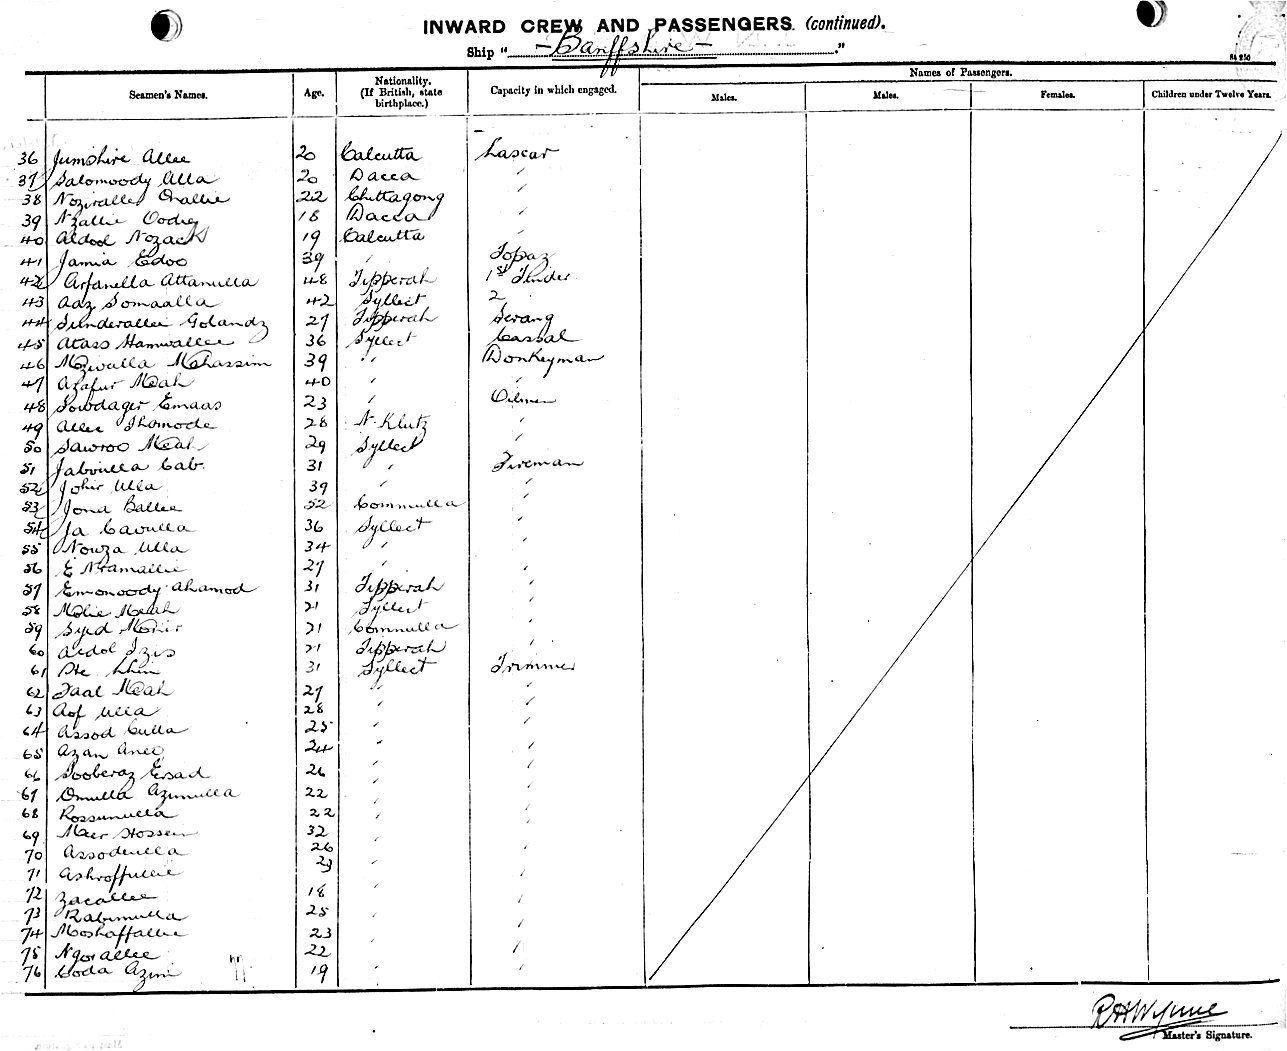 INWARD CREW AND PASSENGERS. (continued).
Ship " - Banffshire - "
Seamen's Names. Age. Nationality. (If British, state birthplace.) Capacity in which engaged. Names of Passengers.
Males. Males. Females. Children under Twelve Years.
36 Jumshire Allee 20 Calcutta Lascar
37 Salomoody Ulla 20 Dacca "
38 Noziralle Orallie 22 Chittagong "
39 Nzallie Oodie 18 Dacca "
40 Aldool Nozack 19 Calcutta "
41 Jamia Edoo 39 " Topaz
42 Arfanella Attamulla 48 Tipperah 1st Tinder
43 Aaz Somaalla 42 Syllect 2
44 Sunderallee Golandz 27 Tipperah Serang
45 Atass Hamwallee 36 Syllect Cassal
46 Mozivulla Mohassim 39 " Donkeyman
47 Azafur Meah 40 " "
48 Sowdager Emaas 23 " Oilmen
49 Allee Thomode 28 N. Klutz "
50 Sawroo Meah 29 Syllect "
51 Jaboulla Cab. 31 " Fireman
52 Johir Ulla 39 " "
53 Jona Ballee 52 Commulla "
54 Ja Caoulla 36 Syllect "
55 Nouza Ulla 34 " "
56 E Nramallie 27 " "
57 Emonoody Ahamod 31 Tipperah "
58 Molie Meah 21 Syllect "
59 Syed Monir 21 Commulla "
60 Aldol Izis 21 Tipperah "
61 31 Syllect Trimmer
62 Taal Meah 27 " "
63 Aof Ulla 28 " "
64 Assod Culla 25 " "
65 Azan Anee 24 " "
66 Sooberaz Ersad 26 " "
67 Omulla Azimulla 22 " "
68 Rossumulla 22 " "
69 Meer Hossein 32 " "
70 Assodeulla 26 " "
71 Ashroffullie 23 " "
72 Zacallee 18 " "
73 Rabimulla 25 " "
74 Moshaffallie 23 " "
75 Ngorallee 22 " "
76 Goda Azim 19 " "
RHWynne
Master's Signature.